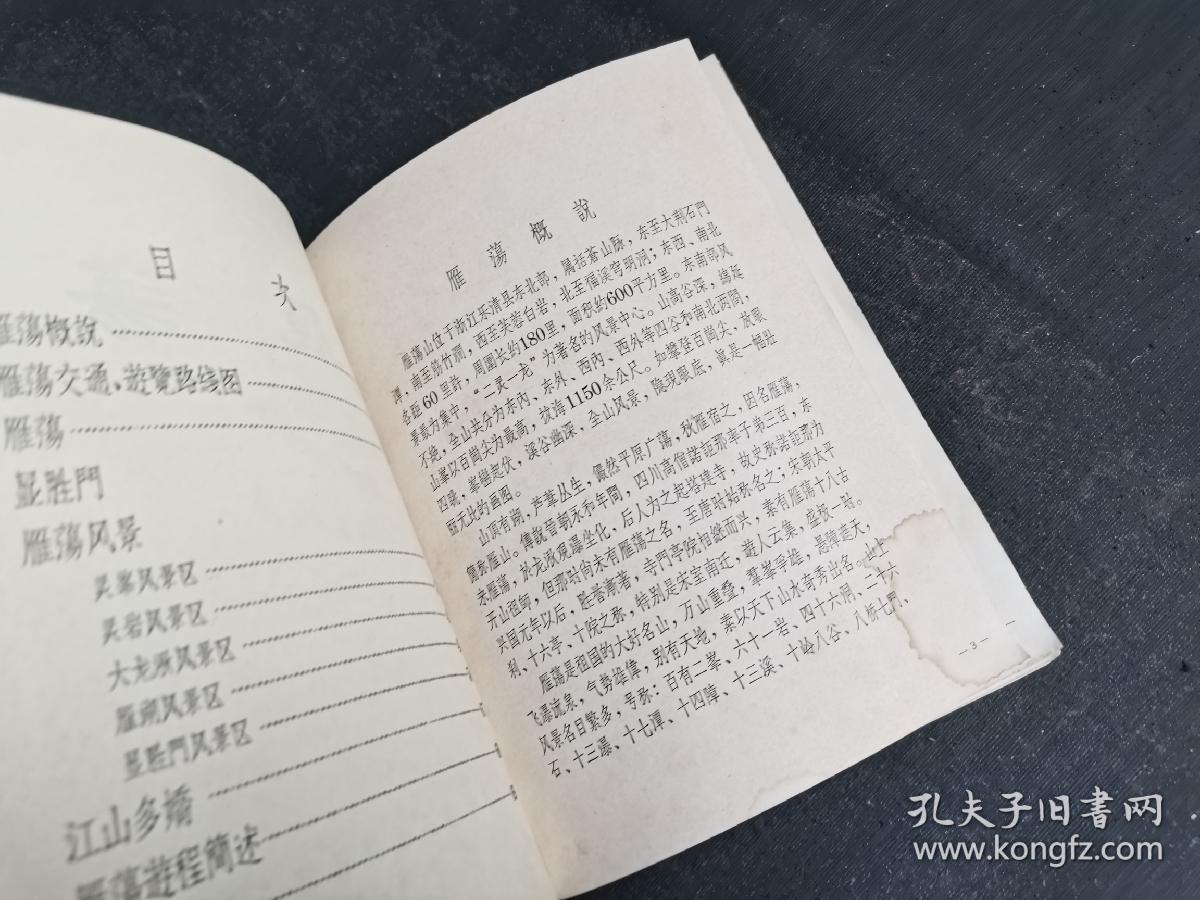 目
雁蕩概說
雁蕩交通、遊覽路线图
雁蕩
显胜門
雁蕩风景
灵峯风景区
灵岩风景区
大龙湫风景区
雁湖风景区
显胜門风景区
江山多嬌
雁蕩遊程簡述
雁蕩概說
雁蕩山位于浙江乐清县东北部，属括蒼山脉，东至大荆石門
潭，南至筋竹澗，西至芙蓉白岩，北至福溪穹明洞；东西、南北
各距60里許，周圍长约180里，面积約600平方里。东南部风
景最为集中，“二灵一龙”为著名的风景中心。山高谷深，綿延
不绝，全山共分为东內、东外、西內、西外等四谷和南北两閤，
山峯以百崗尖为最高，拔海1150余公尺。如攀登百崗尖、放眾
四眺，峯巒起伏，溪谷幽深、全山风景，隐現眼底，眞是一幅壯
丽无比的画图。
山頂有湖，芦葦丛生，儼然平原广蕩，秋雁宿之，因名雁蕩，
簡称雁山。傳說晉朝永和年間，四川高僧諾詎那率子弟三百，东
来雁蕩，於龙湫观瀑坐化，后人为之起塔建寺，故史称諾詎那为
开山祖师，但那时尚未有雁蕩之名，至唐时始称名之；宋朝太平
兴国元年以后，胜蹟漸著，寺門亭院相継而兴，素有雁蕩十八古
刹、十六亭、十院之称，特别是宋室南迁，遊人云集，盛极一时。
雁蕩是祖国的大好名山，万山重叠，羣峯爭雄，悬嶂逦天，
飞瀑流泉，气势雄偉，别有天地，素以天下山水奇秀出名。山上
风景名目繁多，号称：百有二峯、六十一岩、四十六洞、二十六
石、十三瀑、十七潭、十四障、十三溪、十岭八谷、八桥七門，
—3—
孔夫子旧書网
www.kongfz.com